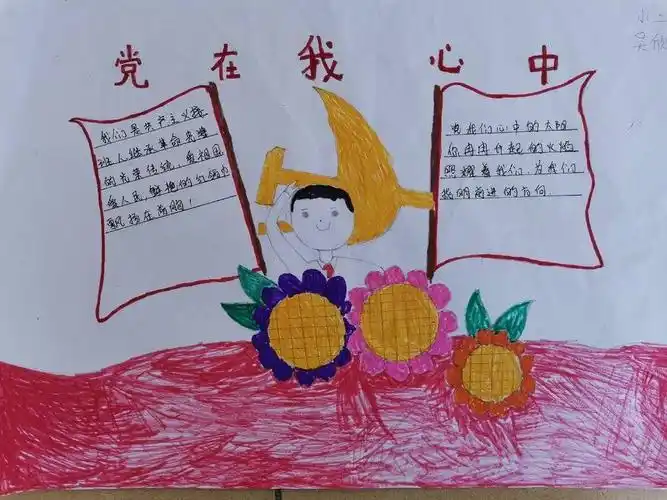 小二
吴欣
党在我心中
我们是共产主义接
班人继承革命先辈
的光荣传统，爱祖国
爱人民，鲜艳的红领巾
飘扬在前胸！
党我们心中的太阳
你用冉冉升起的火的
照耀着我们，为我们
指明前进的方向